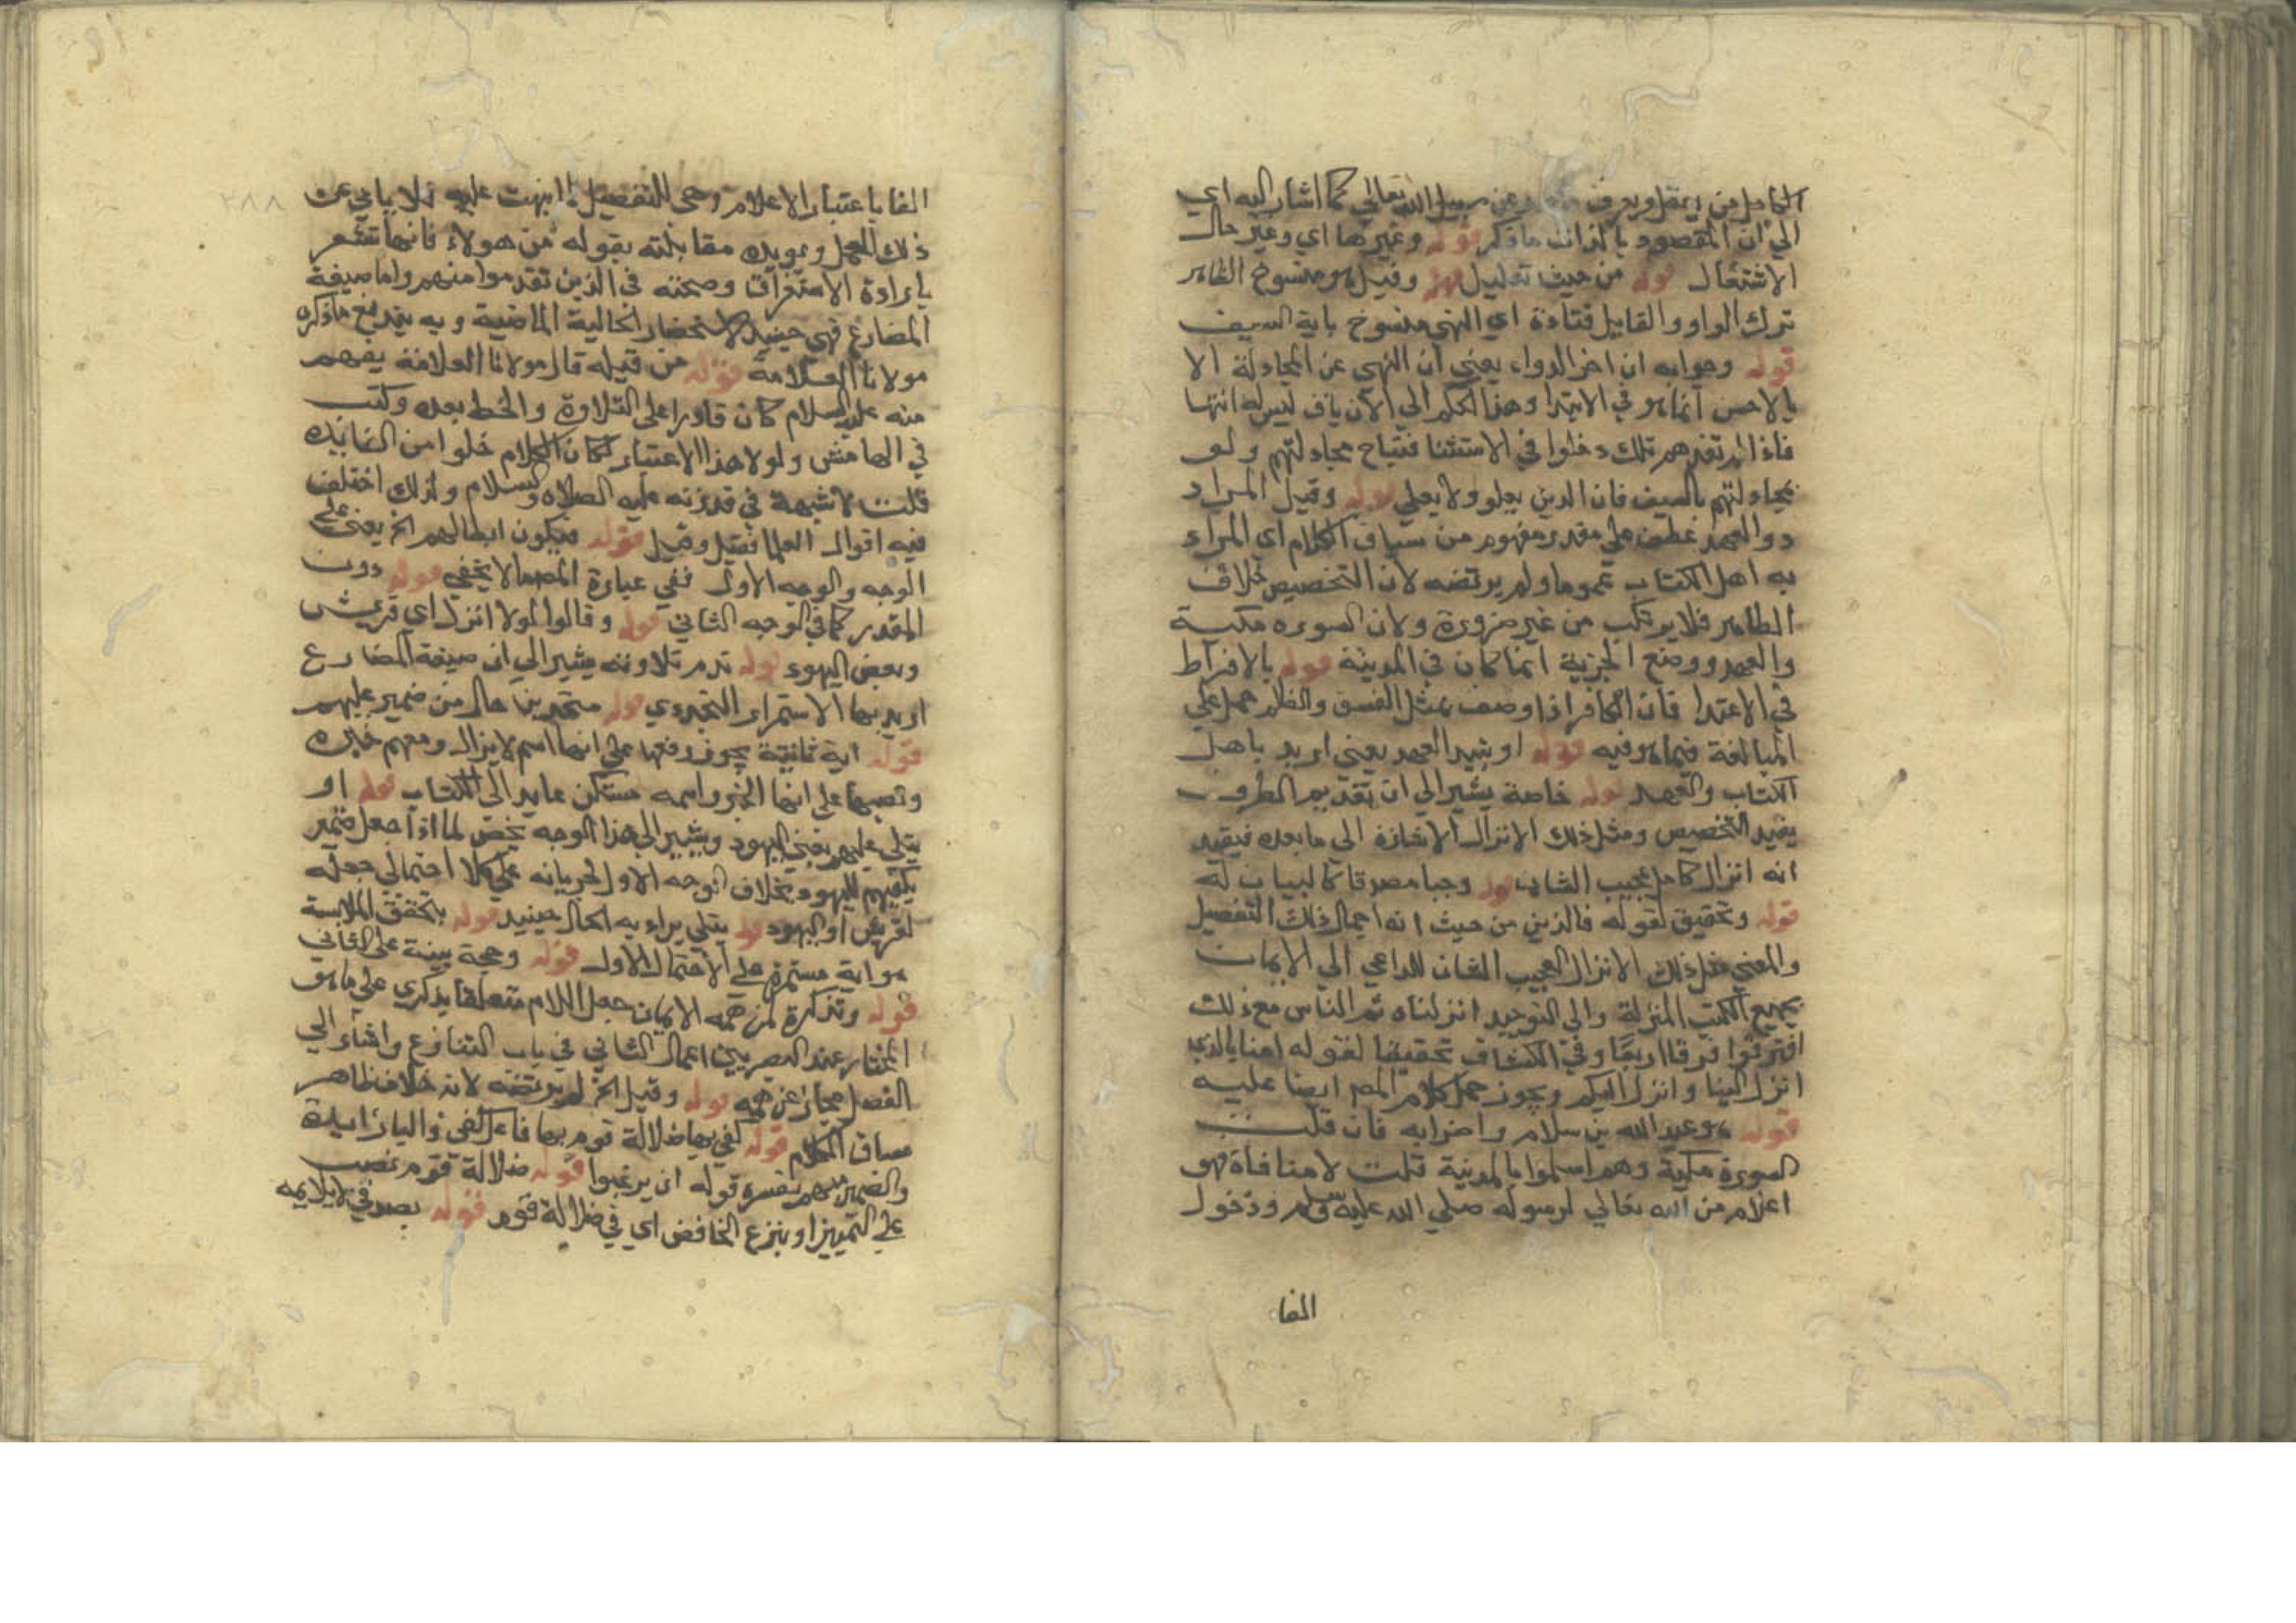 الكامل من يعقل ويعرف عن سبيل الله تعالي كما اشار اليه اي
الي ان المقصود بالذات ما ذكر قوله وغيرها اي وغير حال
الاشتغال قوله من حيث تعليل وقيل هو منسوخ الظاهر
ترك الواو والقايل قتادة اي النهي منسوخ باية السيف
قوله وجوابه ان اخر الدواء يعني ان النهي عن المجادلة الا
بالاحسن انما هو في الابتدا وهذا الحكم الي الآن باق ليس له انتها
فاذا لم تفدهم تلك دخلوا في الاستثنا فتباح مجادلتهم ولو
بمجادلتهم بالسيف فان الدين يعلو ولا يعلي قوله وقيل المراد
ذو العهد عطف علي مقدر مفهوم من سياق الكلام اي المراد
به اهل الكتاب عموما ولم يرتضه لان التخصيص خلاف
الظاهر فلا يرتكب من غير ضرورة ولان السوره مكية
والعهد ووضع الجزية انما كان في المدينة قوله بالافراط
في الاعتدا فان الكافر اذا وصف بمثل الفسق والظلم حمل علي
المبالغة فيما هو فيه قوله او بنبذ العهد يعني اريد باهل
الكتاب والعهد قوله خاصة يشير الي ان تقديم الظرف
يفيد التخصيص ومثل ذلك الانزال الاشارة الي ما بعده فيفيد
انه انزال كامل عجيب الشان قوله وحيا مصدقا كالبيان له
قوله وتحقيق لقوله فالذين من حيث انه اجمال ذلك التفصيل
والمعني مثل ذلك الانزال العجيب الشان الداعي الي الايمان
بجميع الكتب المنزلة والي التوحيد انزلناه ثم الناس مع ذلك
افترقوا فرقا اربعا وفي الكشاف تحقيقا لقوله امنا بالذي
انزل الينا وانزل اليكم ويجوز حمل كلام المص ايضا عليه
قوله هو عبد الله بن سلام واضرابه فان قلت
السورة مكية وهم اسلموا بالمدينة قلت لا منافاة فهو
اعلام من الله تعالي لرسوله صلي الله عليه وسلم ودخول
الفا
الفا باعتبار الاعلام وهي للتفصيل لما نبهت عليه فلا يابي عن
ذلك الحمل ويويده مقابلته بقوله من هولاء فانها تشعر
بارادة الاستغراق وصحته في الذين تقدموا منهم واما صيغة
المضارع فهي حينيذ لاستحضار الحالية الماضية وبه يندفع ما ذكره
مولانا العلامة قوله من قبله قال مولانا العلامة يفهم
منه عليه السلام كان قادرا علي التلاوة والخط بعده وكتب
في الهامش ولولا هذا الاعتبار لكان الكلام خلوا من الفايده
قلت لا شبهة في قدرته عليه الصلاه والسلام ولذلك اختلف
فيه اقوال العلما فقيل وقيل قوله فيكون ابطالهم الخ يعني علي
الوجه والوجه الاول ففي عبارة المص ما لا يخفي قوله دون
المقدر كما في الوجه الثاني قوله وقالوا لولا انزل اي قريش
وبعض اليهود قوله تدم تلاوته يشير الي ان صيغة المضارع
اريد بها الاستمرار التجددي قوله متحدين حال من ضمير عليهم
قوله اية ثابتة يجوز رفعها علي انها اسم لا يزال ومعهم خبره
ونصبها علي انها الخبر واسمه مستكن عايد الي الكتاب قوله او
يتلي عليهم يعني اليهود ويشير الي هذا الوجه يختص لما اذا جعل ضمير
يكفيهم لليهود بخلاف الوجه الاول لجريانه علي كلا احتمالي جعله
لقريش او اليهود قوله يتلي يراد به الحال حينيذ قوله بتحقق الملابسة
هو اية مستمرة علي الاحتمال الاول قوله وحجة بينة علي الثاني
قوله وتذكرة لمن همه الايمان جعل اللام متعلقا بذكري علي ما هو
المختار عند البصريين اعمال الثاني في باب التنازع واشار الي
الفصل مجاز عن همه قوله وقيل الخ لم يرتضه لانه خلاف ظاهر
مساق الكلام قوله كفي بها ضلالة قوم بها فاعل كفي والبا زايدة
والضمير مبهم يفسره قوله ان يرغبوا قوله ضلالة قوم نصب
علي التمييز او بنزع الخافض اي في ضلالة قوم قوله بصدقي لا يلايمه
٢٨٨